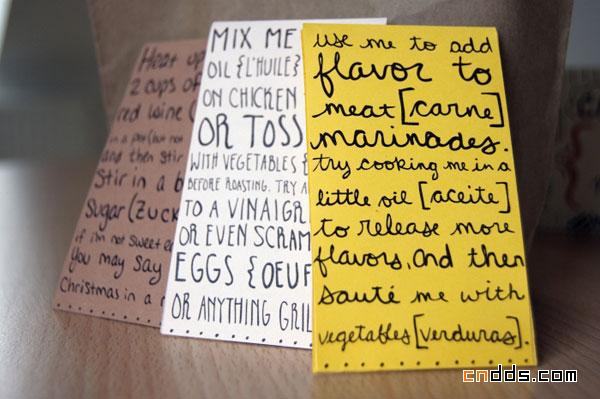 Heat up
2 cups of
red wine
in a pot (but not
and then stir
Stir in a b
Sugar (Zuck
if i'm not sweet e
You may say
Christmas in a
MIX ME
OIL {L'HUILE}
ON CHICKEN
OR TOSS
WITH VEGETABLES {
BEFORE ROASTING. TRY A
TO A VINAIGR
OR EVEN SCRAM
EGGS {OEUF
OR ANYTHING GRIL
use me to add
flavor to
meat [carne]
marinades.
try cooking me in a
little oil [aceite]
to release more
flavors, and then
sauté me with
vegetables [verduras].
cndds.com